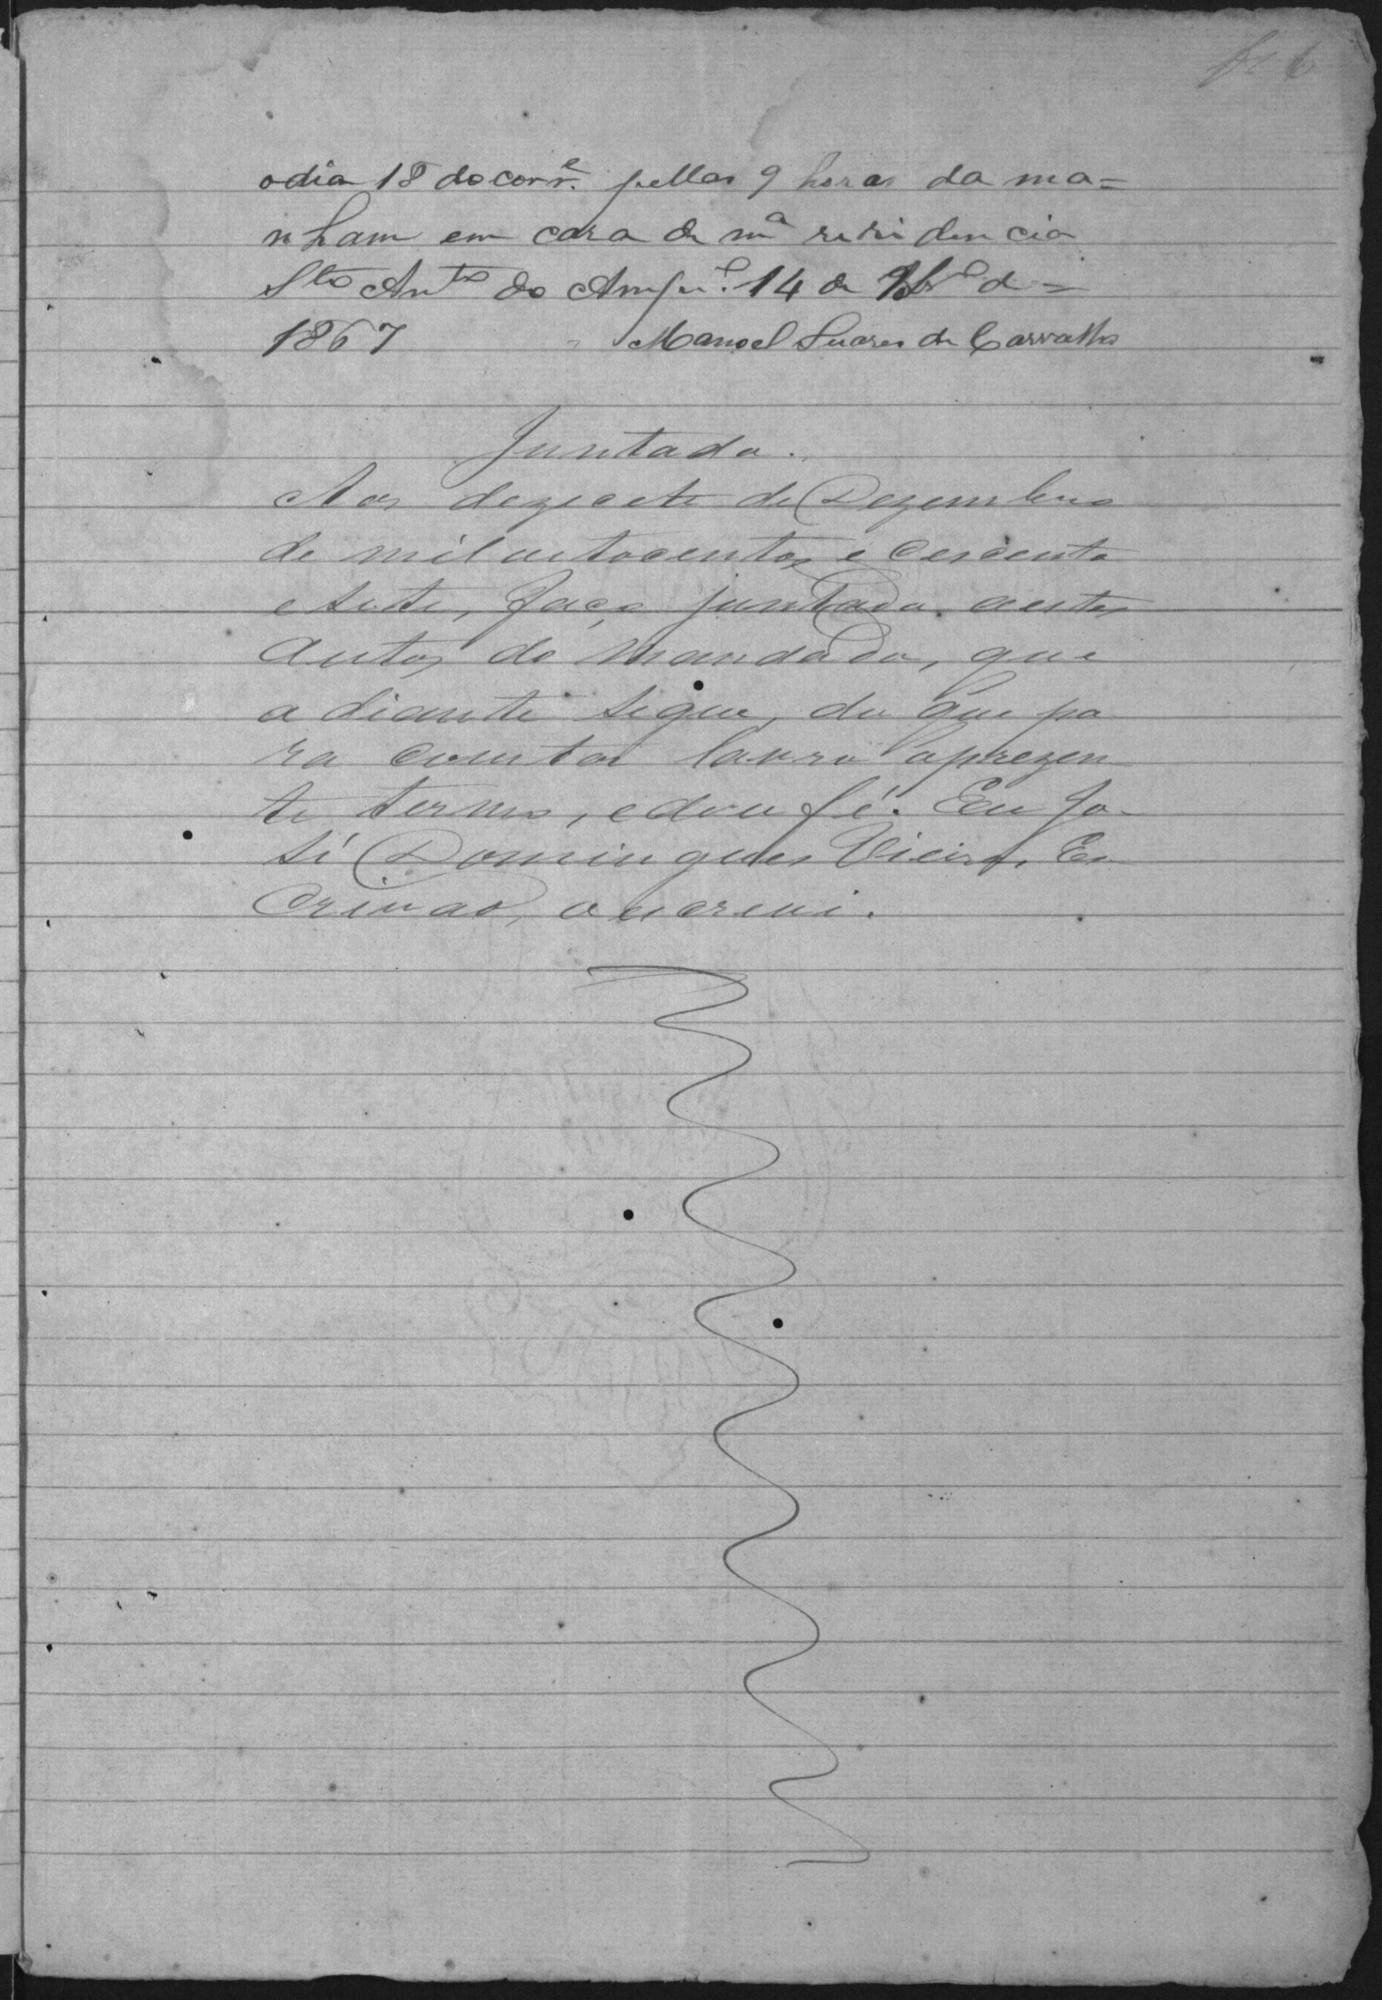 fl 6
odia 18 do corr.e pellas 9 horas da ma=
nham em casa de ma residencia
Sto Anto do Ampro. 14 de Xbro de
1867 Manoel Suares de Carvalho
Juntada.
Aos dezecete de Dezembro
de mil oitocentos e cescenta
e sete, faço juntada aestes
Autos do mandado, que
adiante segue, do que pa
ra constar lavro oprezen
te termo, edou fé. Eu Jo-
sé Domingues Vieira, Es
crivao, o escrevi.